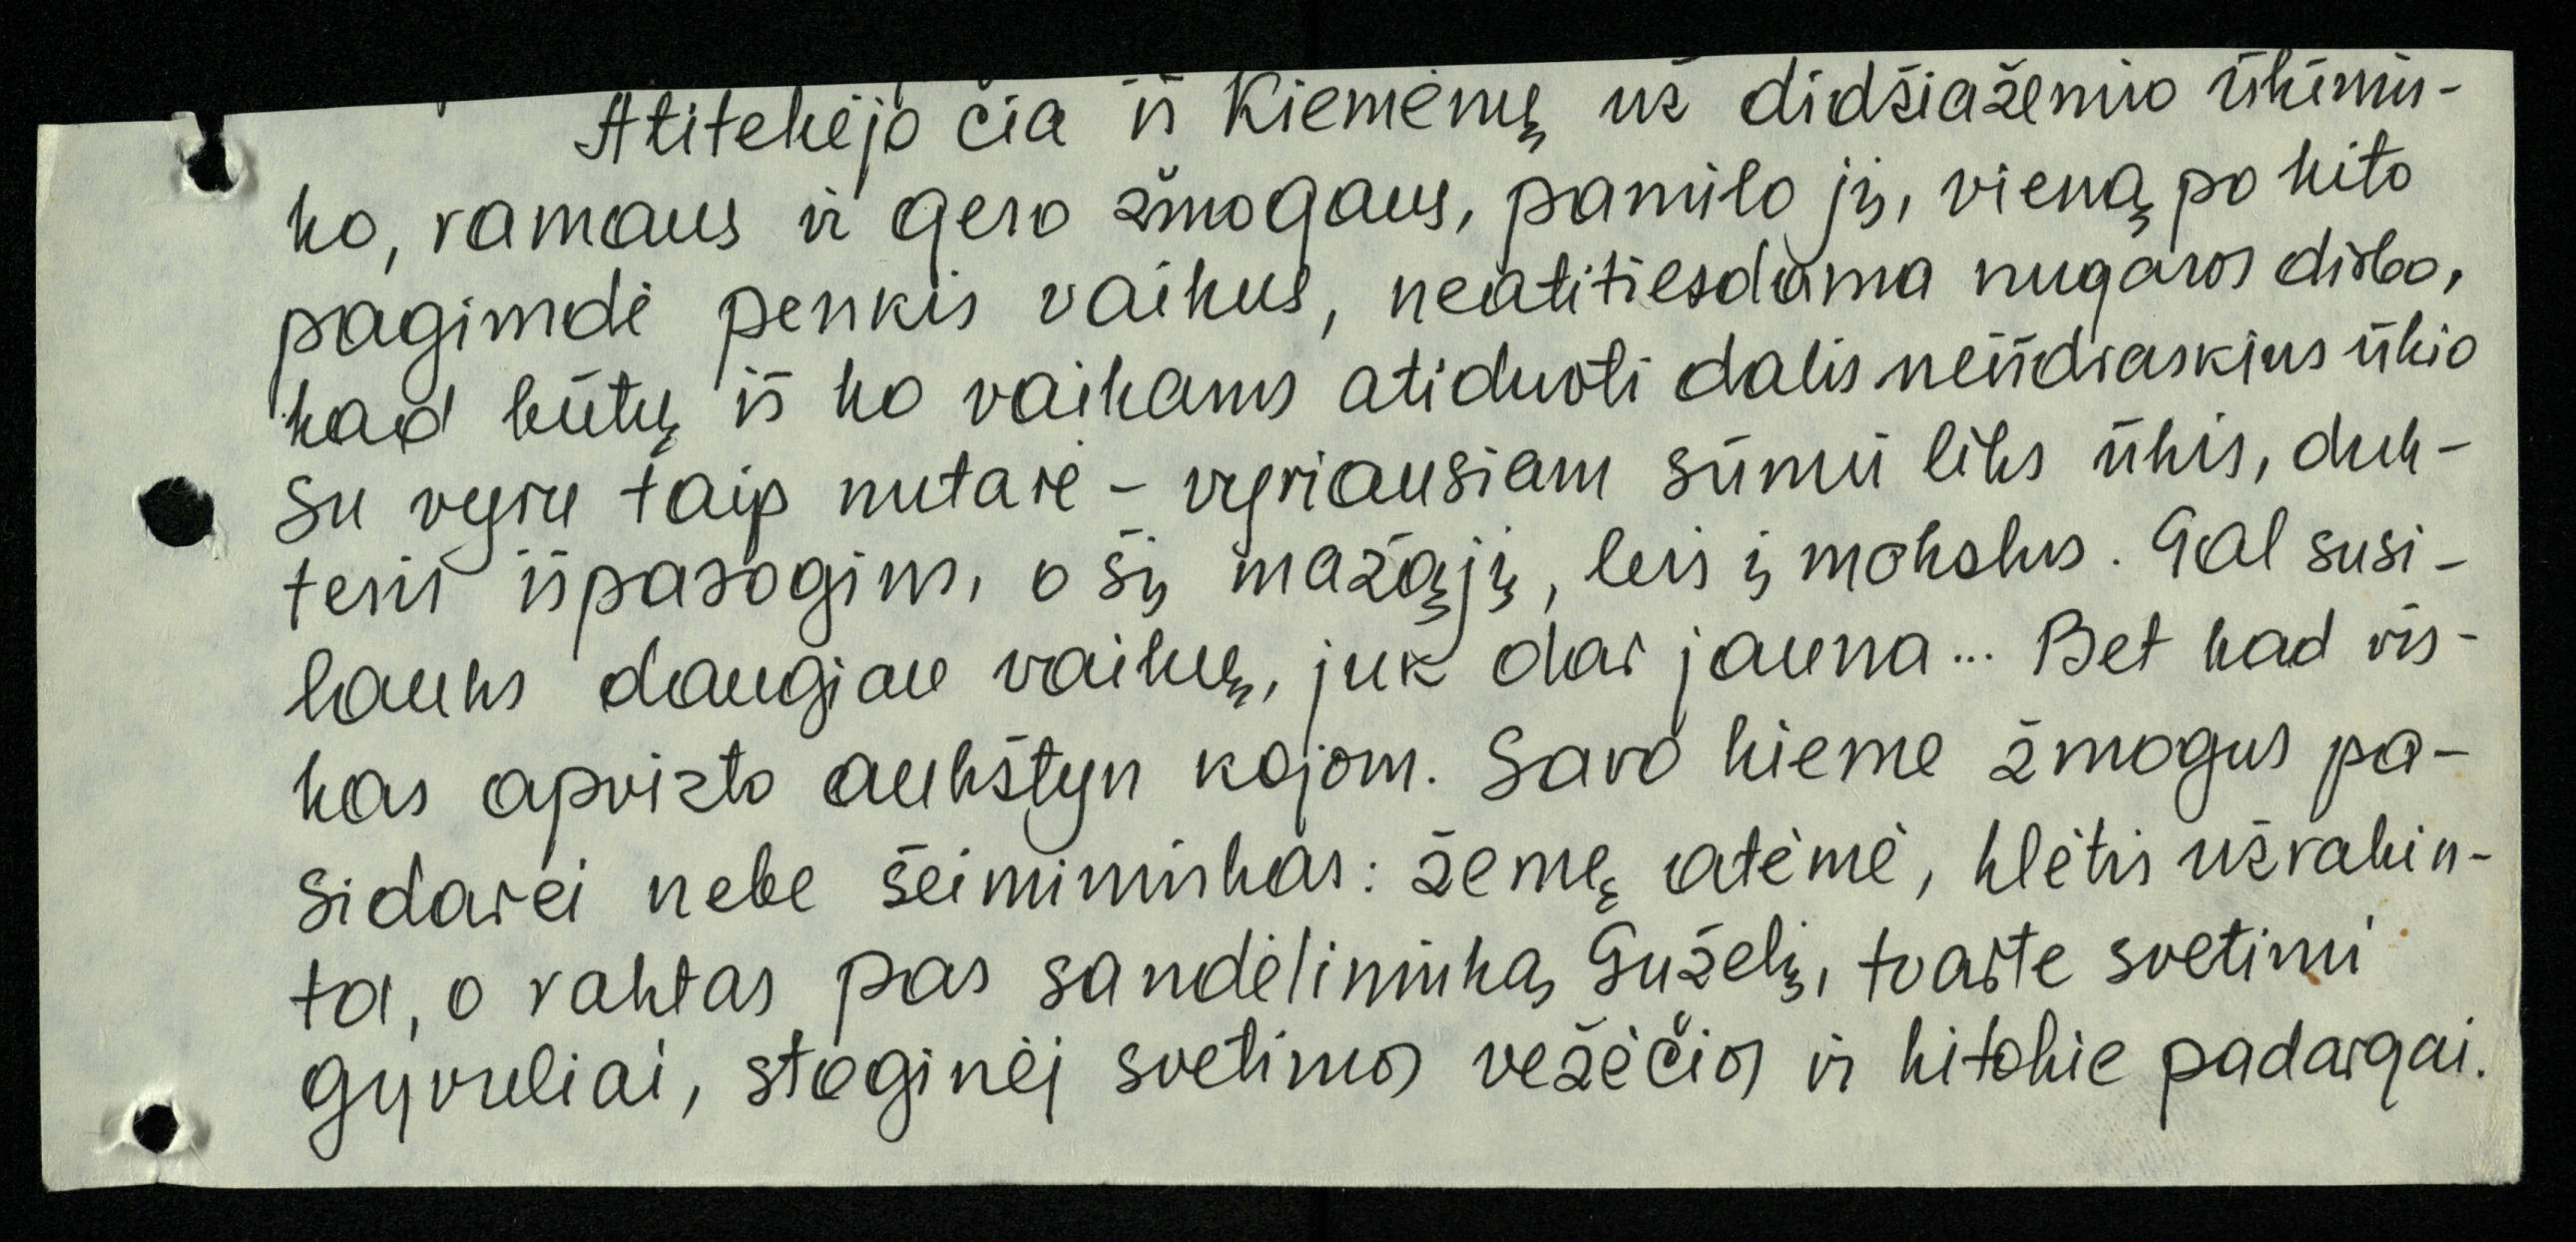 Atitekėjo čia iš Kiemėnų už didžiažemio ūkinin-
ko, ramaus ir gero žmogaus, pamilo jį, vieną po kito
pagimdė penkis vaikus, neatitiesdama nugaros dirbo,
kad būtų iš ko vaikams atiduoti dalis neišdraskius ūkio
su vyru taip nutarė - vyriausiam sūnui liks ūkis, duk-
teris išpasogins, o šį mažąjį, leis į mokslus. Gal susi-
lauks daugiau vaikų, juk dar jauna... Bet kad vis-
kas apvirto aukštyn kojom. Savo kieme žmogus pa-
sidarei nebe šeimininkas: žemę atėmė, klėtis užrakin-
ta, o raktas pas sandėlininką Guželį, tvarte svetimi
gyvuliai, stoginėj svetimos vežėčios ir kitokie padargai.